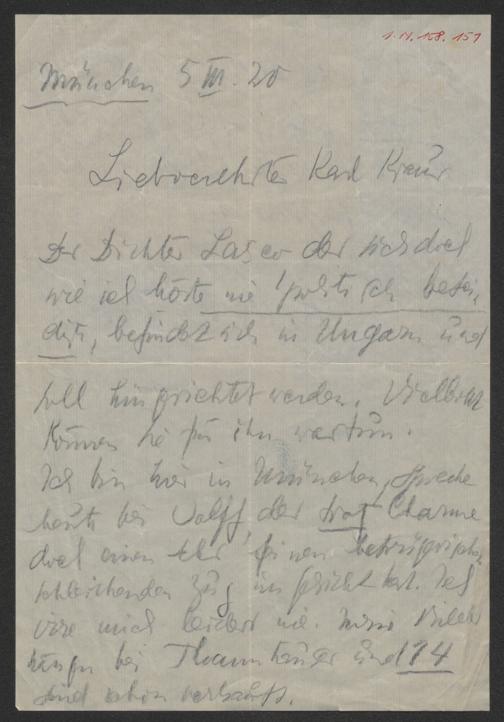 I.N. 158.151
München 5 III. 20
Liebverehrter Karl Kraus
Der Dichter Lasco der sich doch
wie ich hörte nie politisch betei-
ligte, befindet sich in Ungarn und
soll hingerichtet werden. Vielleicht
können Sie für ihn was tun.
Ich bin hier in München, spreche
heute bei Wolff, der trotz Charme
doch einen sehr feinen betrügerischen
schleichenden Zug im Gesicht hat. Ich
irre mich leider nie. Meine Bilder
hängen bei Thannhauser und 14
sind schon verkauft.